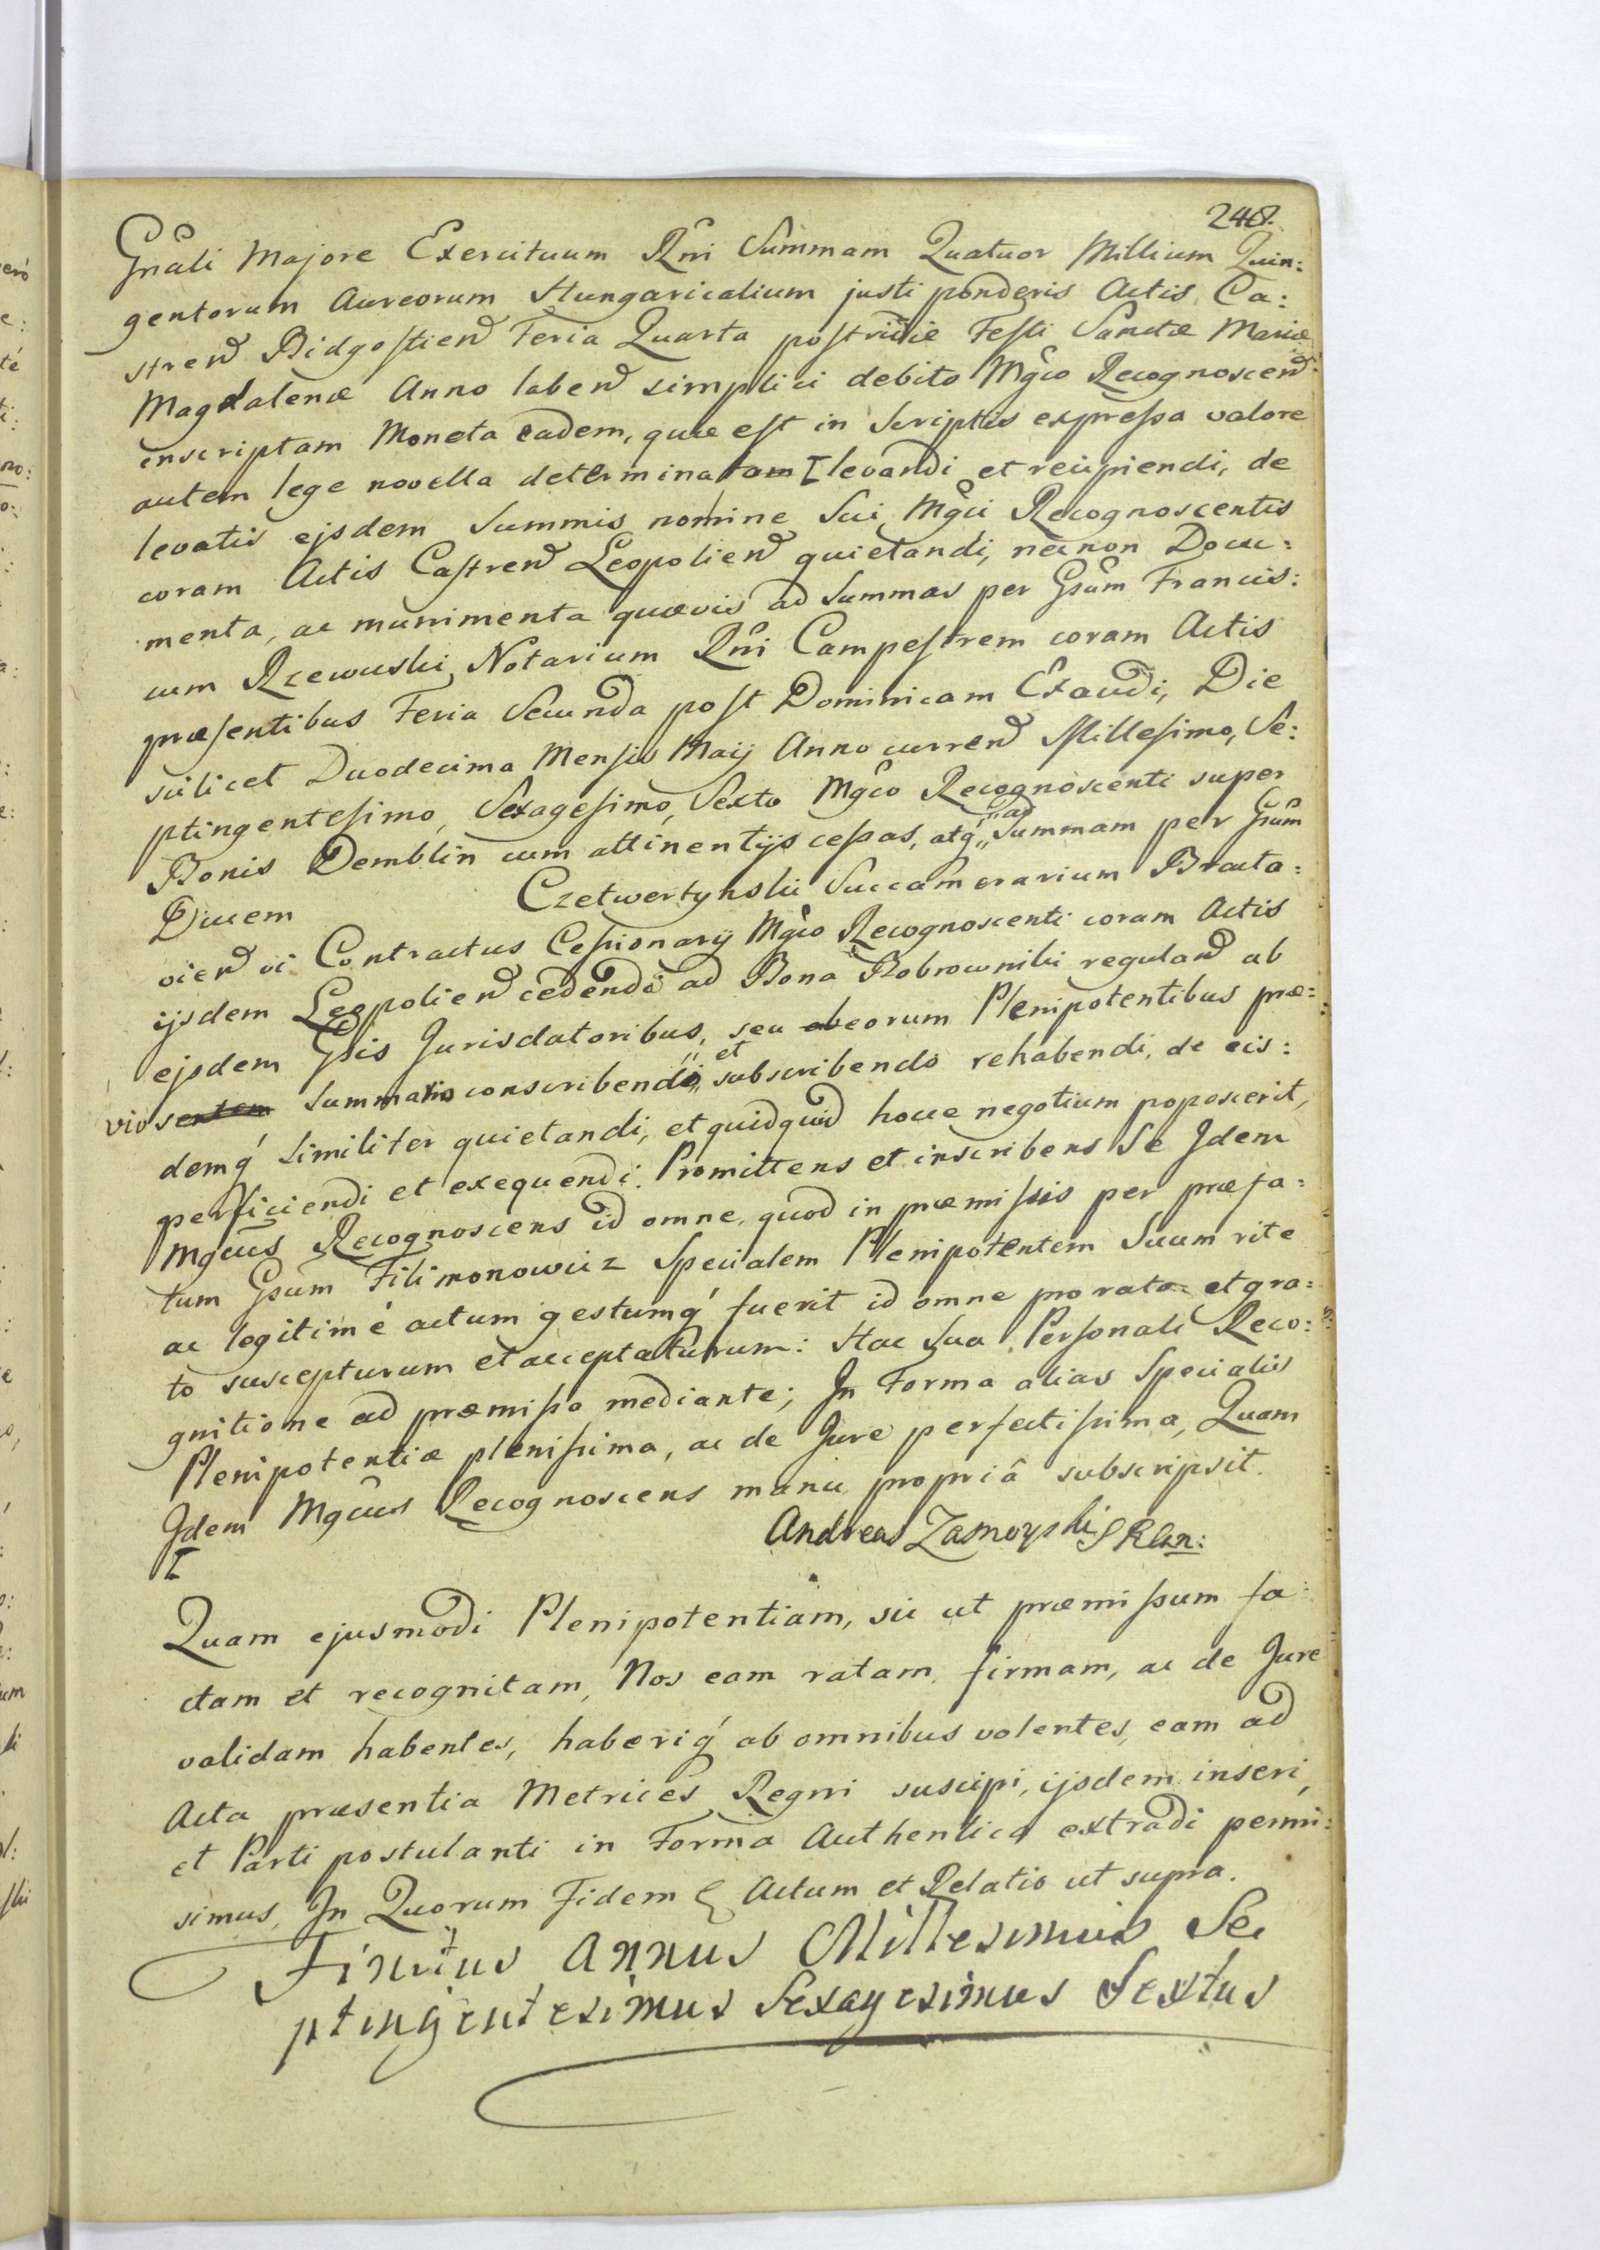 248.
Gnãli Majore Exercituum Rñi Summam Quatuor Millium Quin:
gentorum Aureorum Hungaricalium justi ponderis Actis Ca:
stren Bidgostien Feria Quarta postridie Festi Sanctæ Mariæ
Magdalenæ Anno laben simplici debito Mgco Recognoscen
inscriptam Moneta eadem, quæ est in Scriptis expressa valore
autem lege novella determinatam levandi et recipiendi, de
levatis ejsdem Summis nomine Sui Mgci Recognoscentis
coram Actis Castren Leopolien quietandi, necnon Docu:
menta, ac munimenta quævis ad Summas per Gsum Francis:
cum Rzewuski Notarium Rñi Campestrem coram Actis
præsentibus Feria Secunda post Dominicam Exaudi, Die
scilicet Duodecima Mensis Maij Anno curren Millesimo, Se:
ptingentesimo, Sexagesimo, Sexto Mgco Recognoscenti super
Bonis Demblin cum attinentijs cessas, atq́ ad Summam per Gsum
Ducem Czetwertynski Succamerarium Bracla:
vien vi Contractus Cessionarij Mgco Recognoscenti coram Actis
ijsdem Leopolien cedendi ad Bona Bobrowniki regulan ab
ejsdem Gsis Jurisdatoribus, seu ab eorum Plenipotentibus præ:
vio sentem Summario conscribendo et subscribendo rehabendi, de eis:
demq́ similiter quietandi, et quidquid hocce negotium poposcerit,
perficiendi et exequendi. Promittens et inscribens Se Idem
Mgcus Recognoscens id omne, quod in præmissis per præfa:
tum Gsum Filimonowicz Specialem Plenipotentem Suum rite
ac legitimè actum gestumq́ fuerit id omne pro rato et gra:
to suscepturum et acceptaturum: Hac Sua Personali Reco:
gnitione ad præmissa mediante; In Forma alias Specialis
Plenipotentiæ plenissima, ac de Jure perfectissima, Quam
Idem Mgcus Recognoscens manu propriâ subscripsit.
Andreas Zamoyski
Quam ejusmodi Plenipotentiam, sic ut præmissum fa:
ctam et recognitam, Nos eam ratam, firmam, ac de Jure
validam habentes, haberiq́ ab omnibus volentes, eam ad
Acta præsentia Metrices Regni suscipi, ijsdem inseri,
et Parti postulanti in Forma Authentica extradi permi:
simus, In Quorum Fidem Actum et Relatio ut supra.
Finitus Annus Millesimus Se
ptingentesimus Sexagesimus Sextus